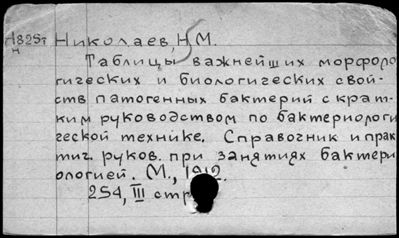 Н825т Николаев, Н.М.
н
Таблицы важнейших морфоло
гических и биологических свой-
ств патогенных бактерий с крат-
ким руководством по бактериологи
ческой технике. Справочник и прак
тич. руков. при занятиях бактери
ологией. М., 1912.
254, III стр